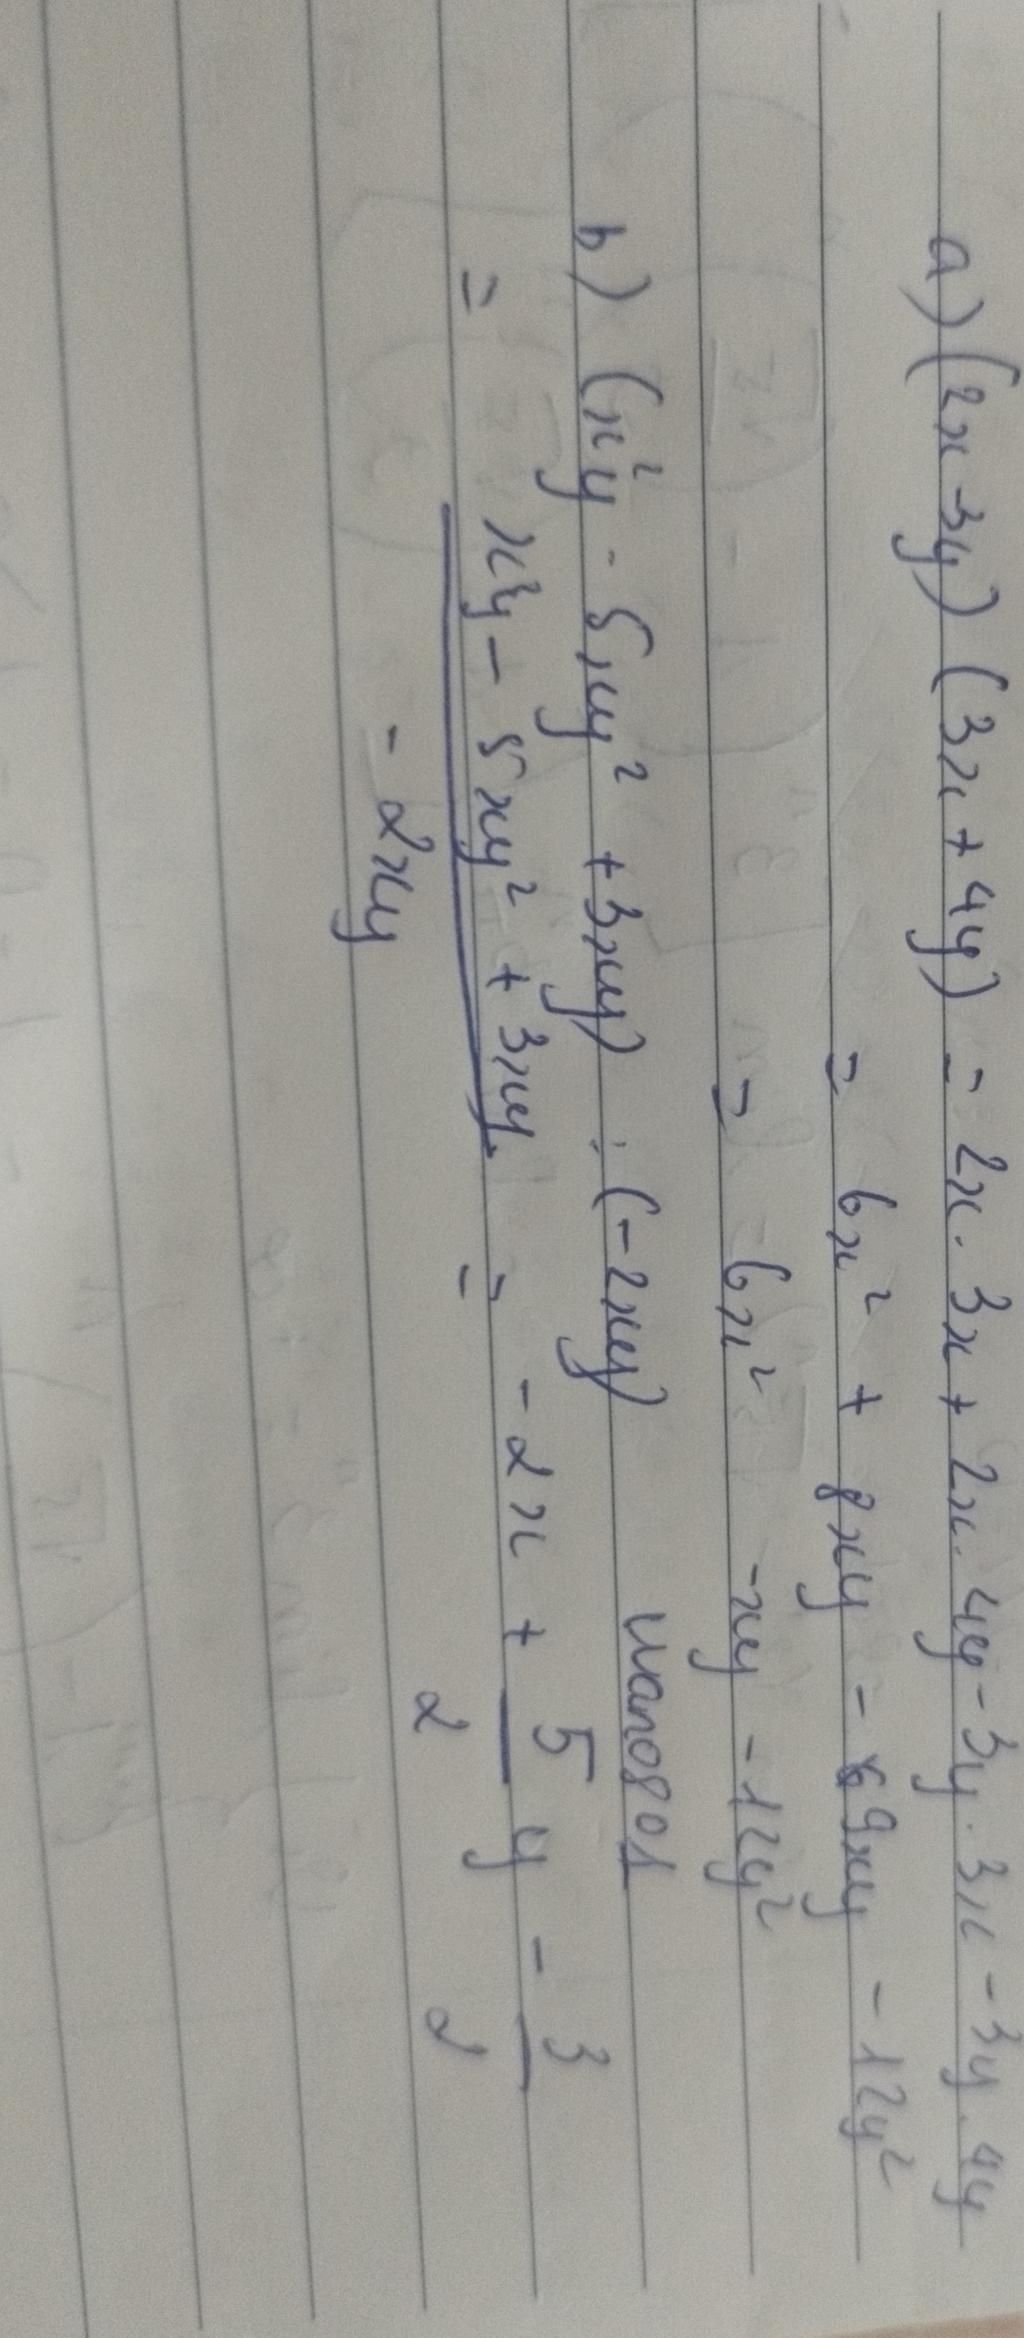 a) (2x-3y) (3x+4y) = 2x.3x + 2x.4y - 3y.3x - 3y.4y
= 6x² + 8xy - 9xy - 12y²
= 6x² - xy - 12y²
b) (x²y - 5xy² + 3xy) : (-2xy) wano801
= x²y - 5xy² + 3xy / - 2xy = - 2x + 5/2 y - 3/2